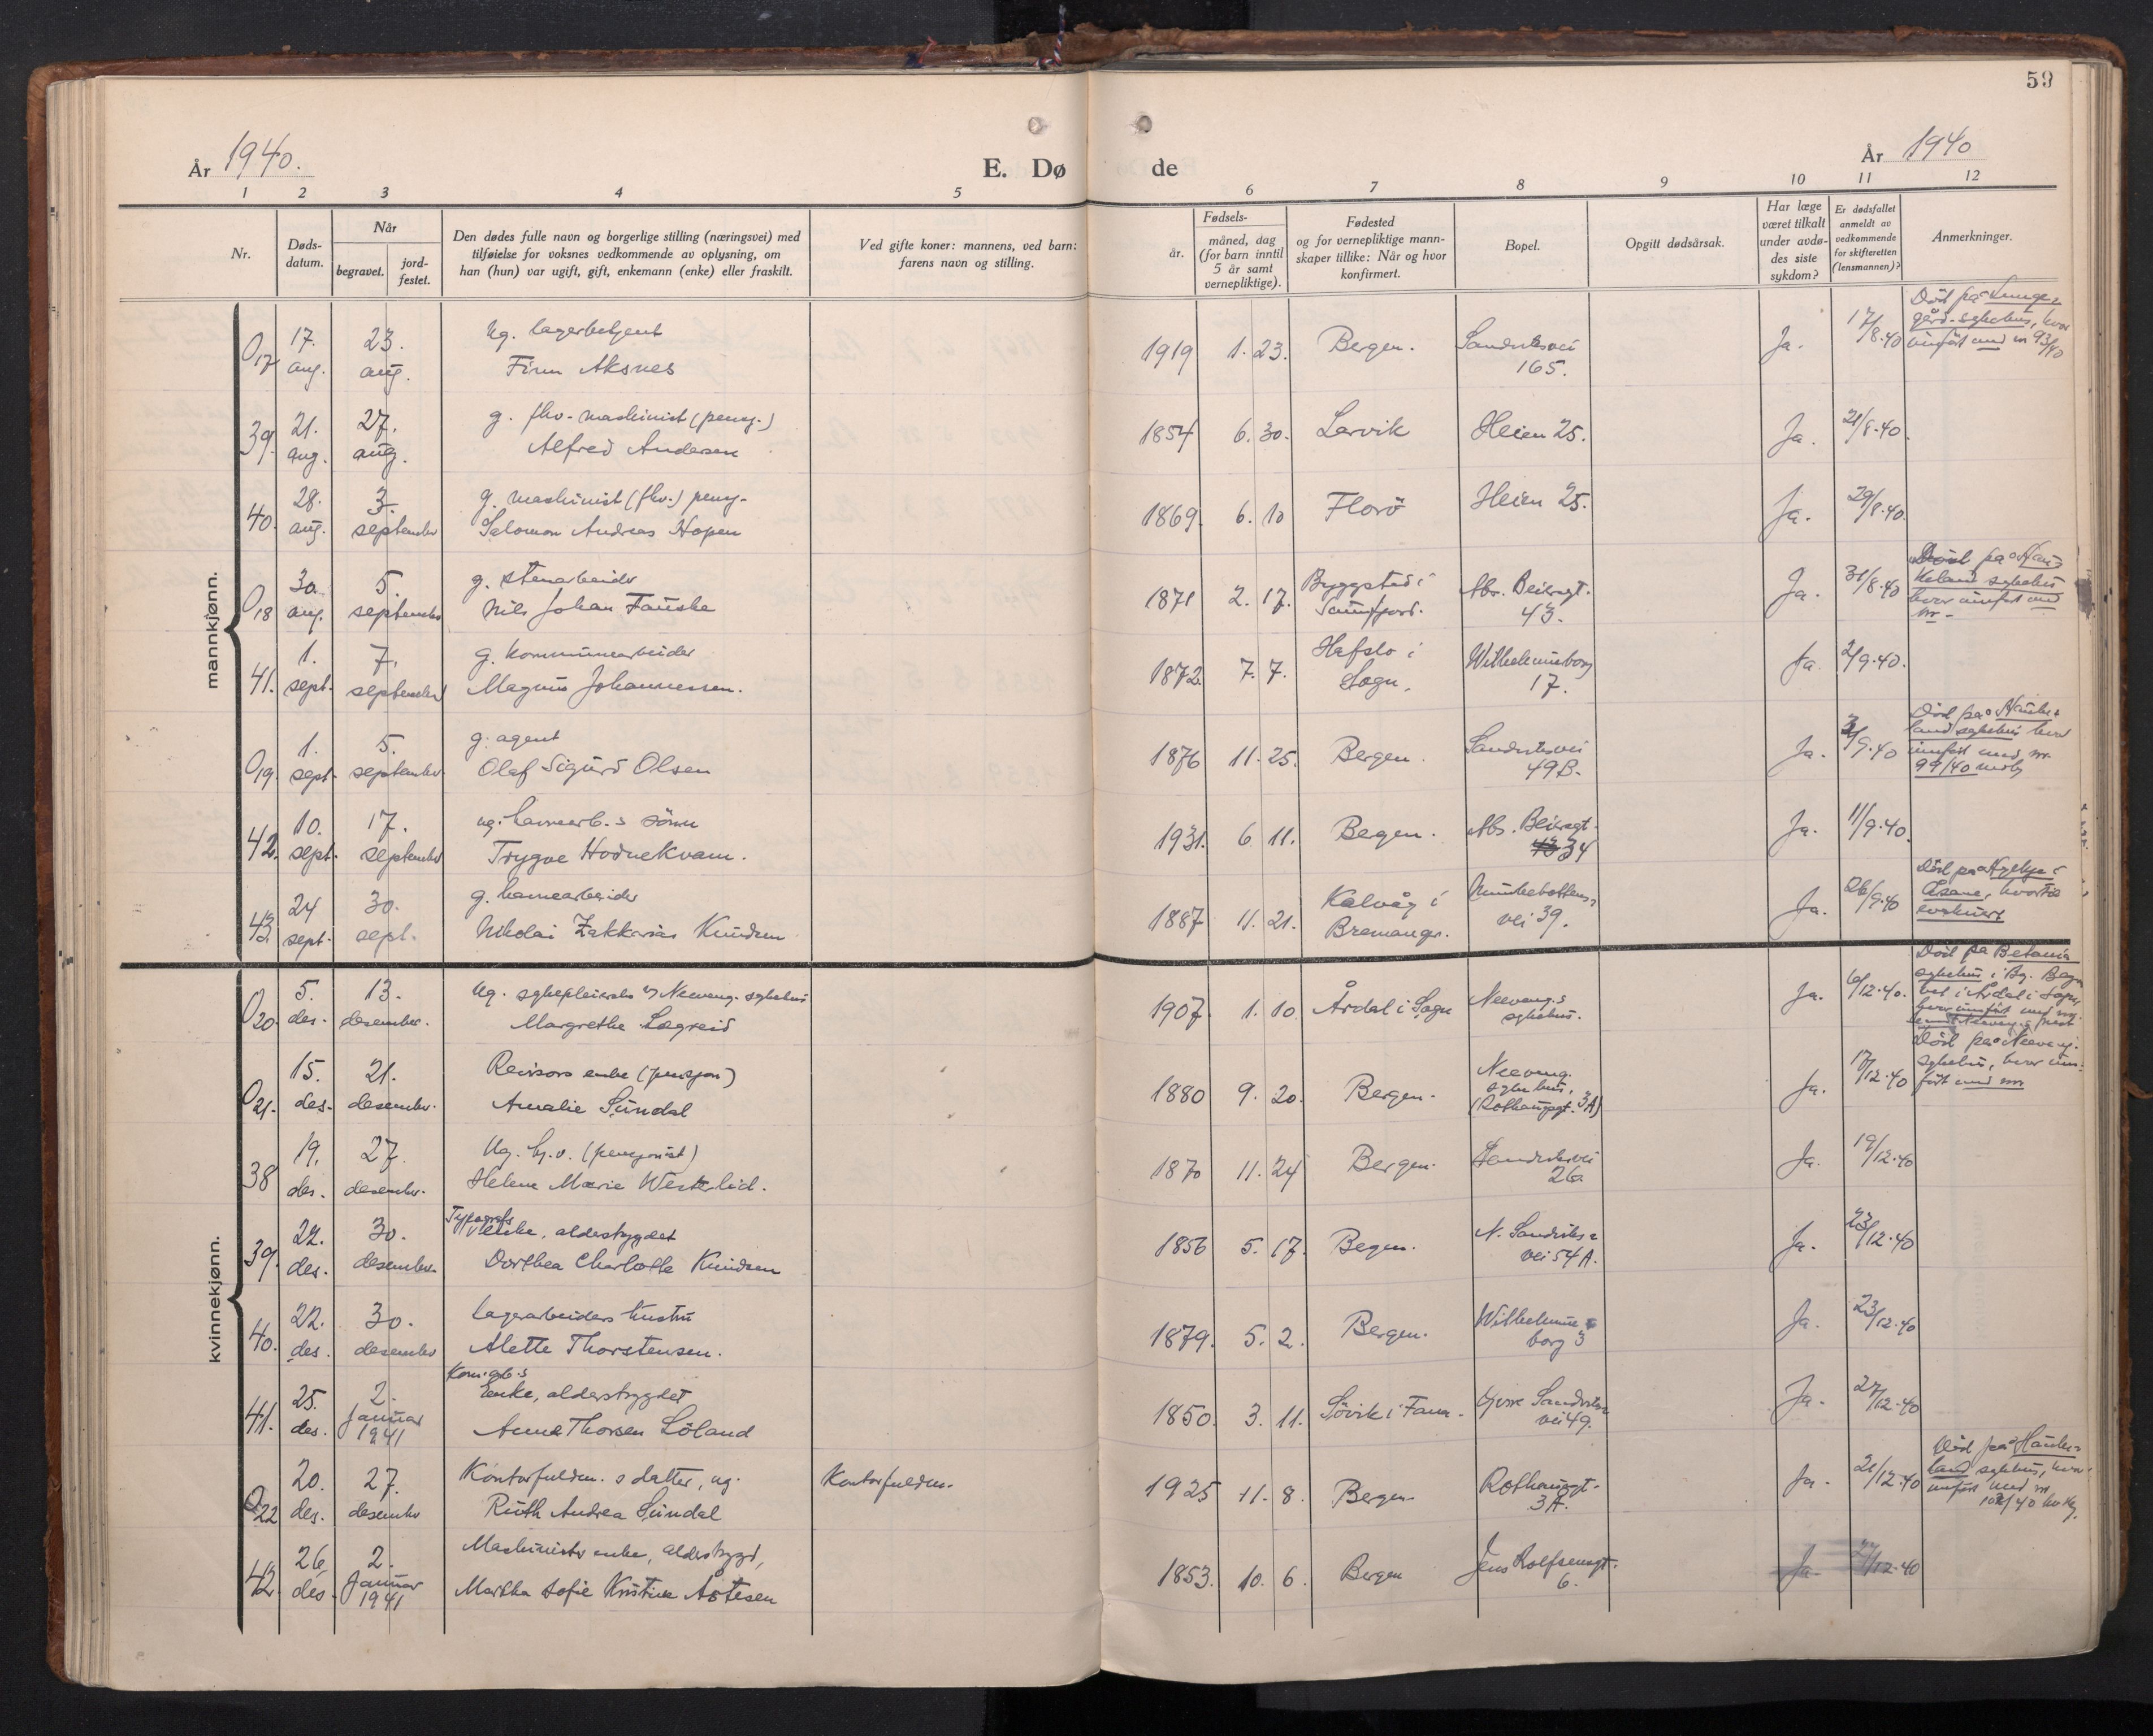 59
År 1940.
E. Dø
de
År 1940
1 2 3 4 5 6 7 8 9 10 11 12
Nr.
Døds-
datum.
Når
begravet.
jord-
festet.
Den dødes fulle navn og borgerlige stilling (næringsvei) med
tilføielse for voksnes vedkommende av oplysning, om
han (hun) var ugift, gift, enkemann (enke) eller fraskilt.
Ved gifte koner: mannens, ved barn:
farens navn og stilling.
Fødsels-
år.
måned, dag
(for barn inntil
5 år samt
vernepliktige).
Fødested
og for vernepliktige mann-
skaper tillike: Når og hvor
konfirmert.
Bopel.
Opgitt dødsårsak.
Har læge
været tilkalt
under avdø-
des siste
sykdom?
Er dødsfallet
anmeldt av
vedkommende
for skifteretten
(lensmannen)?
Anmerkninger.
mannkjønn.
017 17. aug. 23. aug. ug. lagerbetjent
Finn Aksnes
1919 1. 23. Bergen. Sandviksvei
165.
Ja. 17/8.40
Død på Lunge-
gård. sykehus, hvor
innført med nr 93/40
39. 21. aug. 27. aug. g. fhv. maskinist (pensj.)
Alfred Andersen
1854 6. 30. Larvik Heien 25. Ja. 21/8.40.
40. 28. aug. 3. september g. maskinist (fhv.) pensj.
Salomon Andreas Hopen
1869. 6. 10 Florö Heien 25. Ja. 29/8.40.
018 30. aug. 5. september g. stenarbeider
Nils Johan Fauske
1871 2. 17. Byggstad i
Sunnfjord.
Abs. Beiersgt.
43.
Ja. 31/8.40
Død på Hau-
keland sykehus
hvor innført med
nr -
41. 1. sept. 7. september g. kommunearbeider
Magnus Johannessen.
1872. 7. 7. Hafslo i
Sogn.
Wilhelminsborg
17.
Ja. 2/9.40.
019. 1. sept. 5. september g. agent
Olaf Sigurd Olsen
1876 11. 25. Bergen. Sandviksvei
49B.
Ja. 3/9.40
Død på Hauke-
land sykehus hvor
innført med nr.
99/40
42. 10. sept. 17. september ug. havnearb.s sönn
Trygve Hodnekvam.
1931. 6 11. Bergen. Abs. Beiersgt.
34
Ja. 11/9.40.
43. 24 sept. 30. sept. g. havnearbeider
Nikolai Zakkarias Knudsen
1887 11. 21. Kalvåg i
Bremanger.
Munkebottens-
vei 39.
Ja. 26/9.40
Død på i
Åsane, hvortil
evakuert
kvinnekjønn.
020. 5. des. 13. desember. Ug. sykepleierske v/ Neeveng. sykehus
Margrethe Lægreid
1907 1. 10 Årdal i Sogn Neeveng.s
sykehus.
Ja. 6/12.40.
Død på Betania
sykehus i Bg. Begra-
vet i Årdal i Sogn,
hvor innført med nr.
021. 15. des. 21. desember. Revisors enke (pensjon)
Amalie Sundal
1880 9. 20. Bergen. Neeveng.
sykehus,
(Rothaugsgt. 3A)
Ja. 17/12.40
Død på Neeveng.
sykehus, hvor inn-
ført med nr
38 19. des. 27. desember. Ug. h.v. (pensjonist)
Helene Marie Westerlid.
1870 11. 24 Bergen. Sandviksvei
26
Ja. 19/12.40
39. 22. des. 30. desember. Typografs
enke, alderstrygdet
Dorthea Charlotte Knudsen
1856 5. 17. Begen. N. Sandviks-
vei 54A.
Ja. 23/12.40
40. 22. des. 30. desember Lagerarbeiders hustru
Alette Thorstensen.
1879. 5. 2. Bergen. Wilhelmins-
borg 3
Ja. 23/12.40
41. 25. des. 2. Januar 1941 Kom.arb.s
Enke, alderstrygdet
Anna Thorsen Söland
1850. 3. 11. Sövik i Fana. Övre Sandviks-
vei 49.
Ja. 27/12.40
022 20. des. 27. desember Kontorfuldm.s datter, ug.
Ruth Andrea Sundal
Kontorfuldm.
1925 11. 8. Bergen. Rothaugsgt.
3A.
Ja. 21/12.40
Død på Hauke-
land sykehus, hvor
innført med nr
42 26 des. 2. Januar 1941 Maskinists enke, alderstrygd,
Martha Sofie Kristine Astesen
1853. 10. 6. Bergen Jens Rolfsensgt.
6.
Ja. 27/12.40